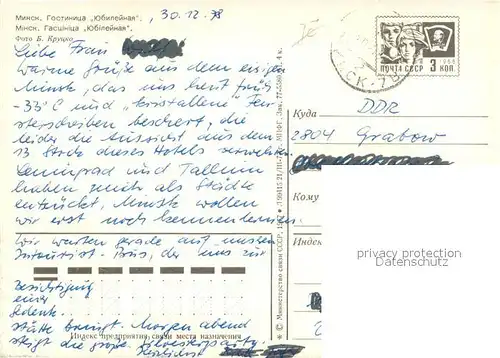 Минск. Гостиница „Юбилейная“.
Мінск. Гасцініца „Юбілейная“.
Фото Б. Круцко
30.12.78
Liebe Frau
warme Grüße aus dem eisigen
Minsk, das uns heut früh
-33°C und „kristallene“ Fen-
sterscheiben beschert, die
leider die Aussicht aus dem
13. Stock dieses Hotels verwehren.
Leningrad und Tallinn
haben mich als Städte
entzückt, Minsk wollen
wir erst noch kennenlernen.
Wir warten gerade auf unseren
Intourist-Bus, der uns zur
Besichtigung
einer
Gedenk-
stätte bringt. Morgen abend
steigt die große Silvesterparty.
Herzlichst
Индекс предприятия связи места назначения
© Министерство связи СССР, 1967
ПОЧТА СССР 3 КОП
1966
Куда
DDR
2804 Grabow
Кому
Индекс
privacy protection
Datenschutz